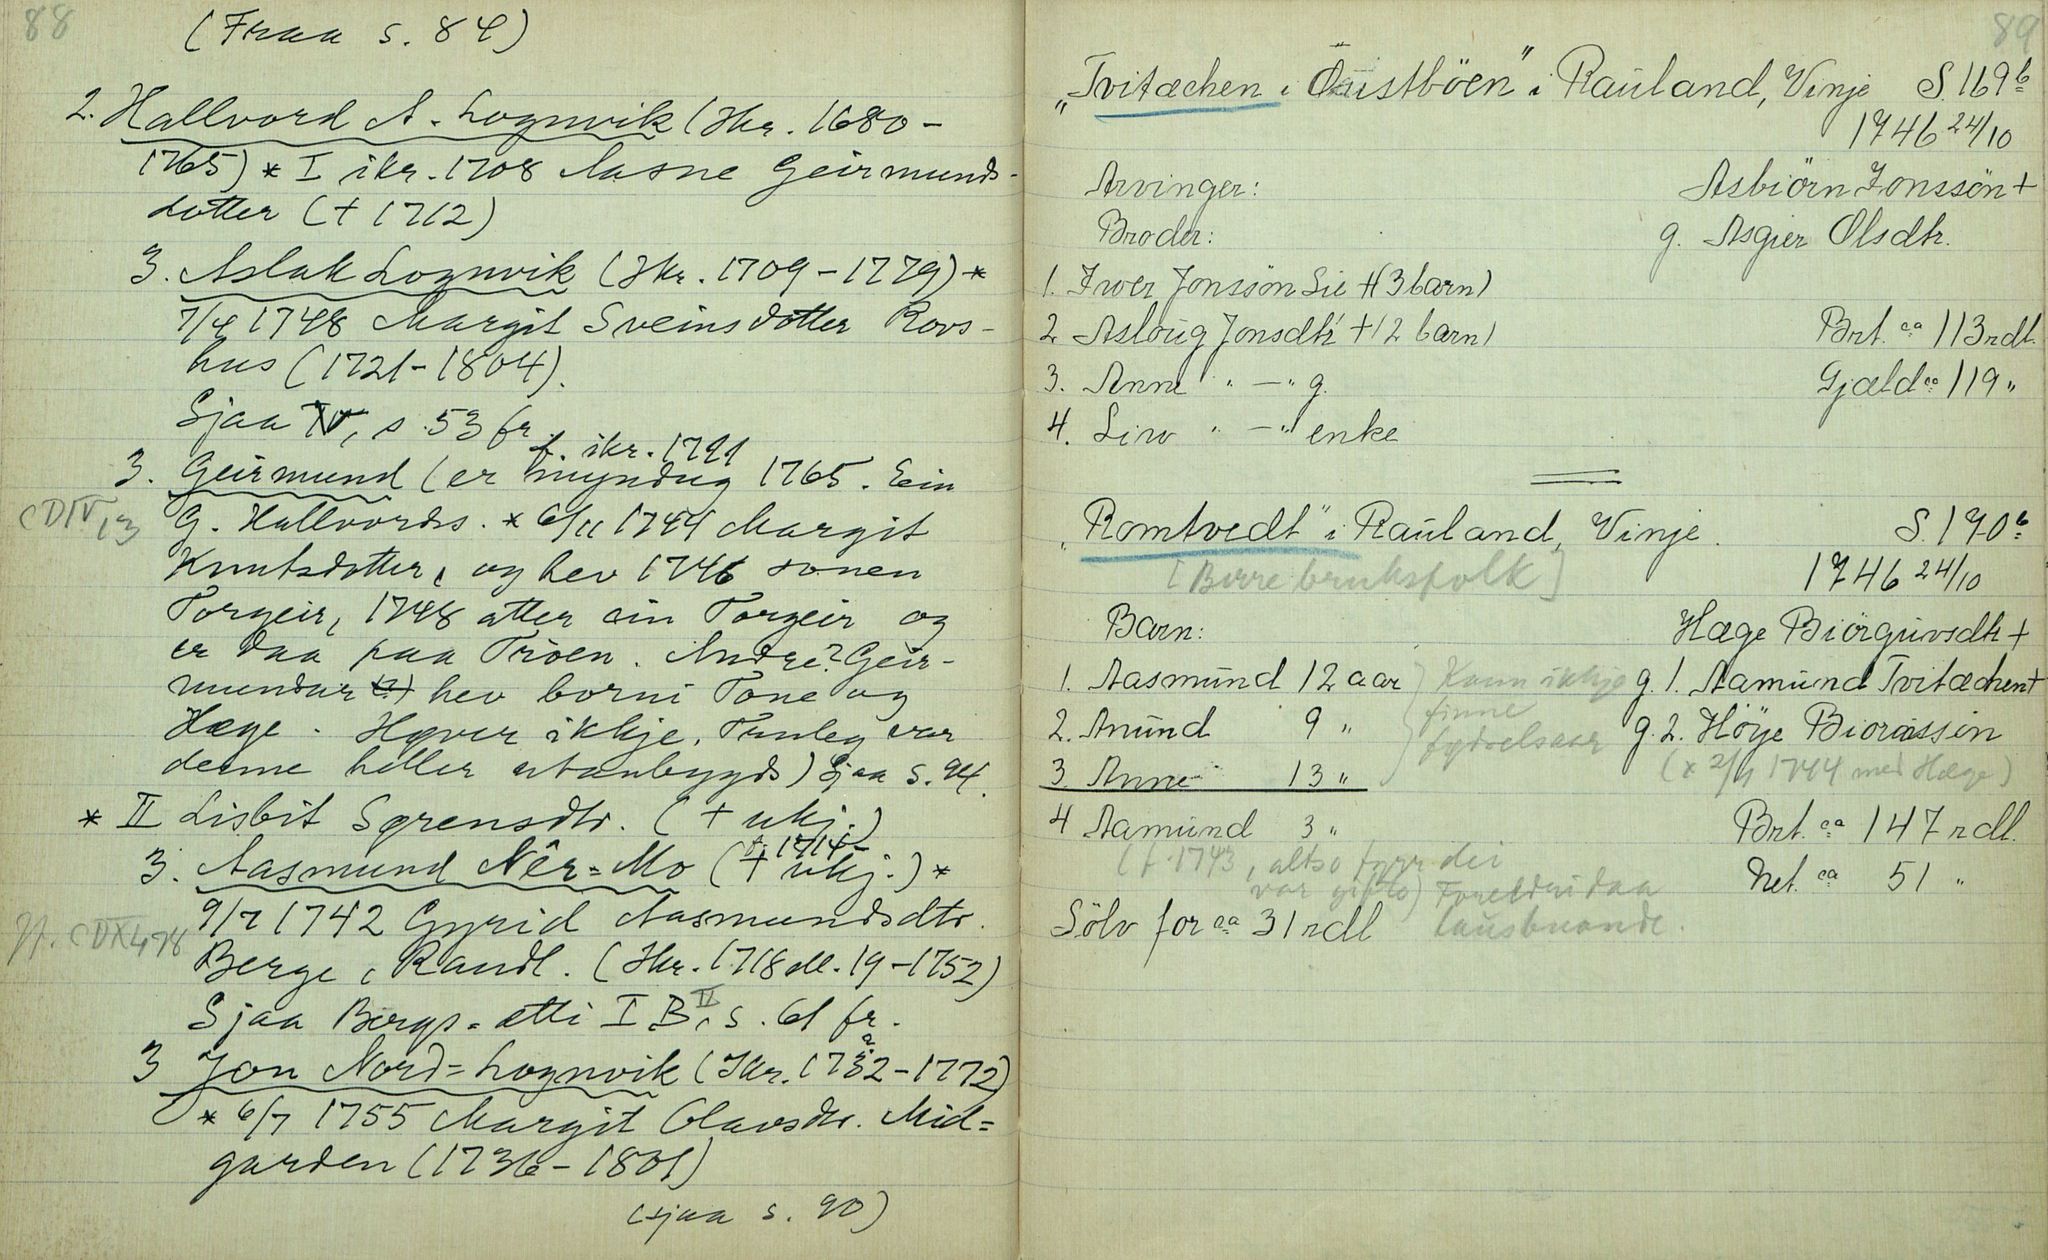 88
(Fraa s. 84)
2. Hallvord A. Lognvik (Ikr. 1680-
1765) * I ikr. 1708 Aasne Geirmunds-
dotter (+ 1712)
3. Aslak Lognvik (Ikr. 1709-1779) *
7/4 1748 Margit Sveinsdotter Rovs-
hus (1721-1804).
Sjaa IV, s. 53 fr.
f. ikr. 1711
3. Geirmund (er myndug 1765. Ein
CD IV 13
G. Hallvords. * 6/11 1744 Margit
Knutsdotter, og hev 1746 sonen
Torgeir, 1748 atter ein Torgeir og
er daa paa Tröen. Andre? Geir-
mundar (?) hev borni Tone og
Hæge. Høver ikkje. Truleg var
denne heller utanbygds) Sjaa s. 94.
* II Lisbit Sørensdtr. (+ ukj.)
f. 1714
3. Aasmund Nêr-Mo (+ ukj.) *
9/7 1742 Gyrid Aasmundsdtr.
Jf. CD X 478
Berge, Raudl. (Ikr. 1718 el. 19-1752)
Sjaa Bergs-ætti I B, II s. 61 fr.
3 Jon Nord-Lognvik (Ikr. 1732-1772)
* 6/7 1755 Margit Olavsdtr. Mid-
garden (1736-1801)
(sjaa s. 90)
89
"Tvitæchen i Öustböen" i Rauland, Vinje S. 169b
1746 24/10
Arvinger: Asbiörn Jonssön +
Broder: g. Asgier Olsdtr.
1. Iwer Jonssön Lie + (3 barn)
2 Asloug Jonsdtr + (2 barn) Brt. ca 113 rdl.
3. Anne " —" g. Gjæld ca 119 "
4. Liw " —" enke
"Romtvedt" i Rauland, Vinje. S. 170b
[Berre bruksfolk] 1746 24/10
Barn: Hæge Biörguvsdtr +
1. Aasmund 12 aar Kann ikkje g. 1. Aamund Tvitæchen +
finne
2. Anund 9 " fydselsaar g. 2. Höye Biorassen
3. Anne 13 " (* 2/7 1744 med Hæge)
4 Aamund 3 " Brt. ca 147 rdl.
(f. 1743, altso fyrr dei
var gifte) Foreldri daa Net. ca 51 "
Sölv for ca 31 rdl lausbuande.